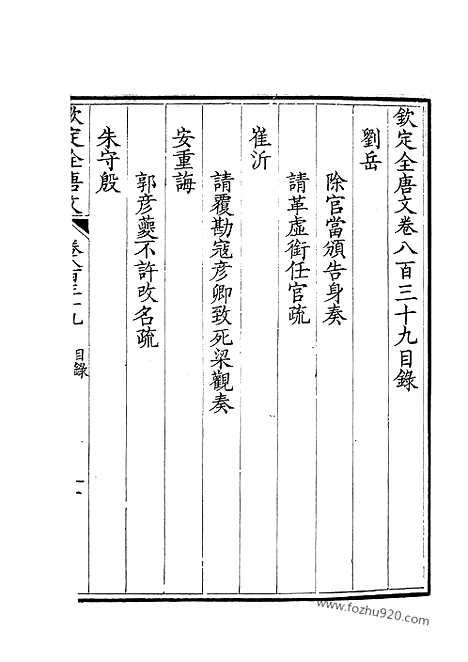 欽定全唐文卷八百三十九目錄
劉岳
除官當頒告身奏
請革虛銜任官疏
崔沂
請覆勘寇彥卿致死梁觀奏
安重誨
郭彥夔不許改名疏
朱守殷
欽定全唐文 卷八百三十九 目錄 一
www.fozhu920.com